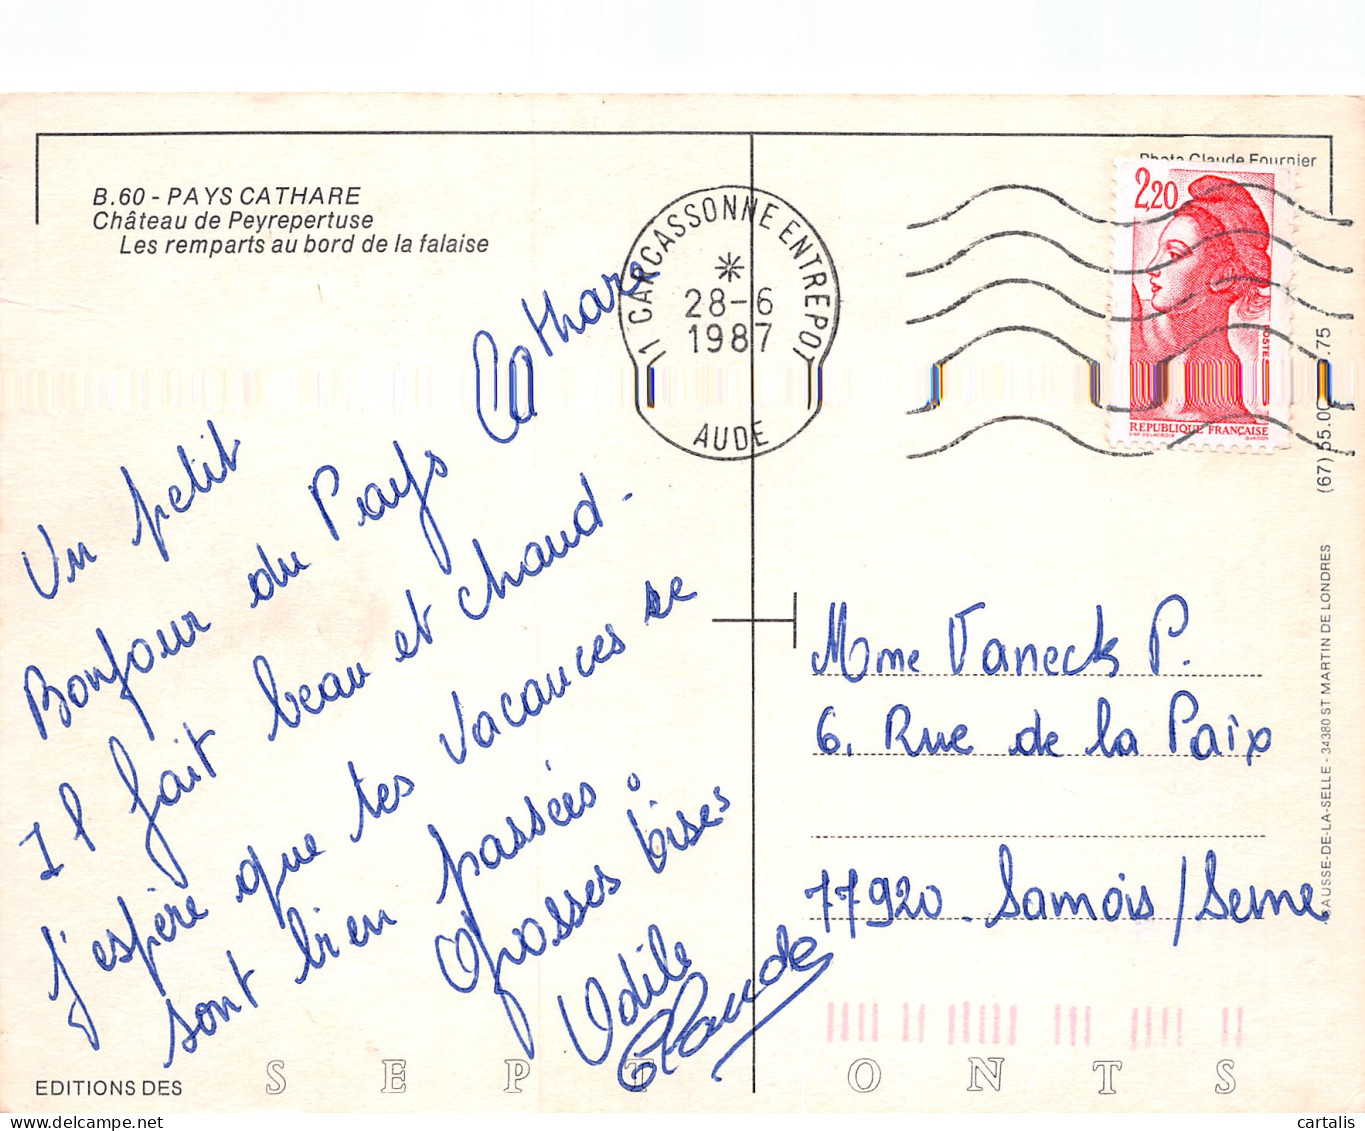 B.60 - PAYS CATHARE
Château de Peyrepertuse
Les remparts au bord de la falaise
Photo Claude Fournier
11 CARCASSONNE ENTREPOT
28-6
1987
AUDE
2,20
POSTES
REPUBLIQUE FRANÇAISE
Un petit
Bonjour du Pays Cathare
Il fait beau et chaud.
J'espère que tes vacances se
sont bien passées.
Grosses bises
Odile
Claude
Mme Vaneck P.
6, Rue de la Paix
77920 - Samois/Seine
EDITIONS DES
SEPT
ONTS
AUSSE-DE-LA-SELLE - 34380 ST MARTIN DE LONDRES
(67) 55.00 .75
cartalis